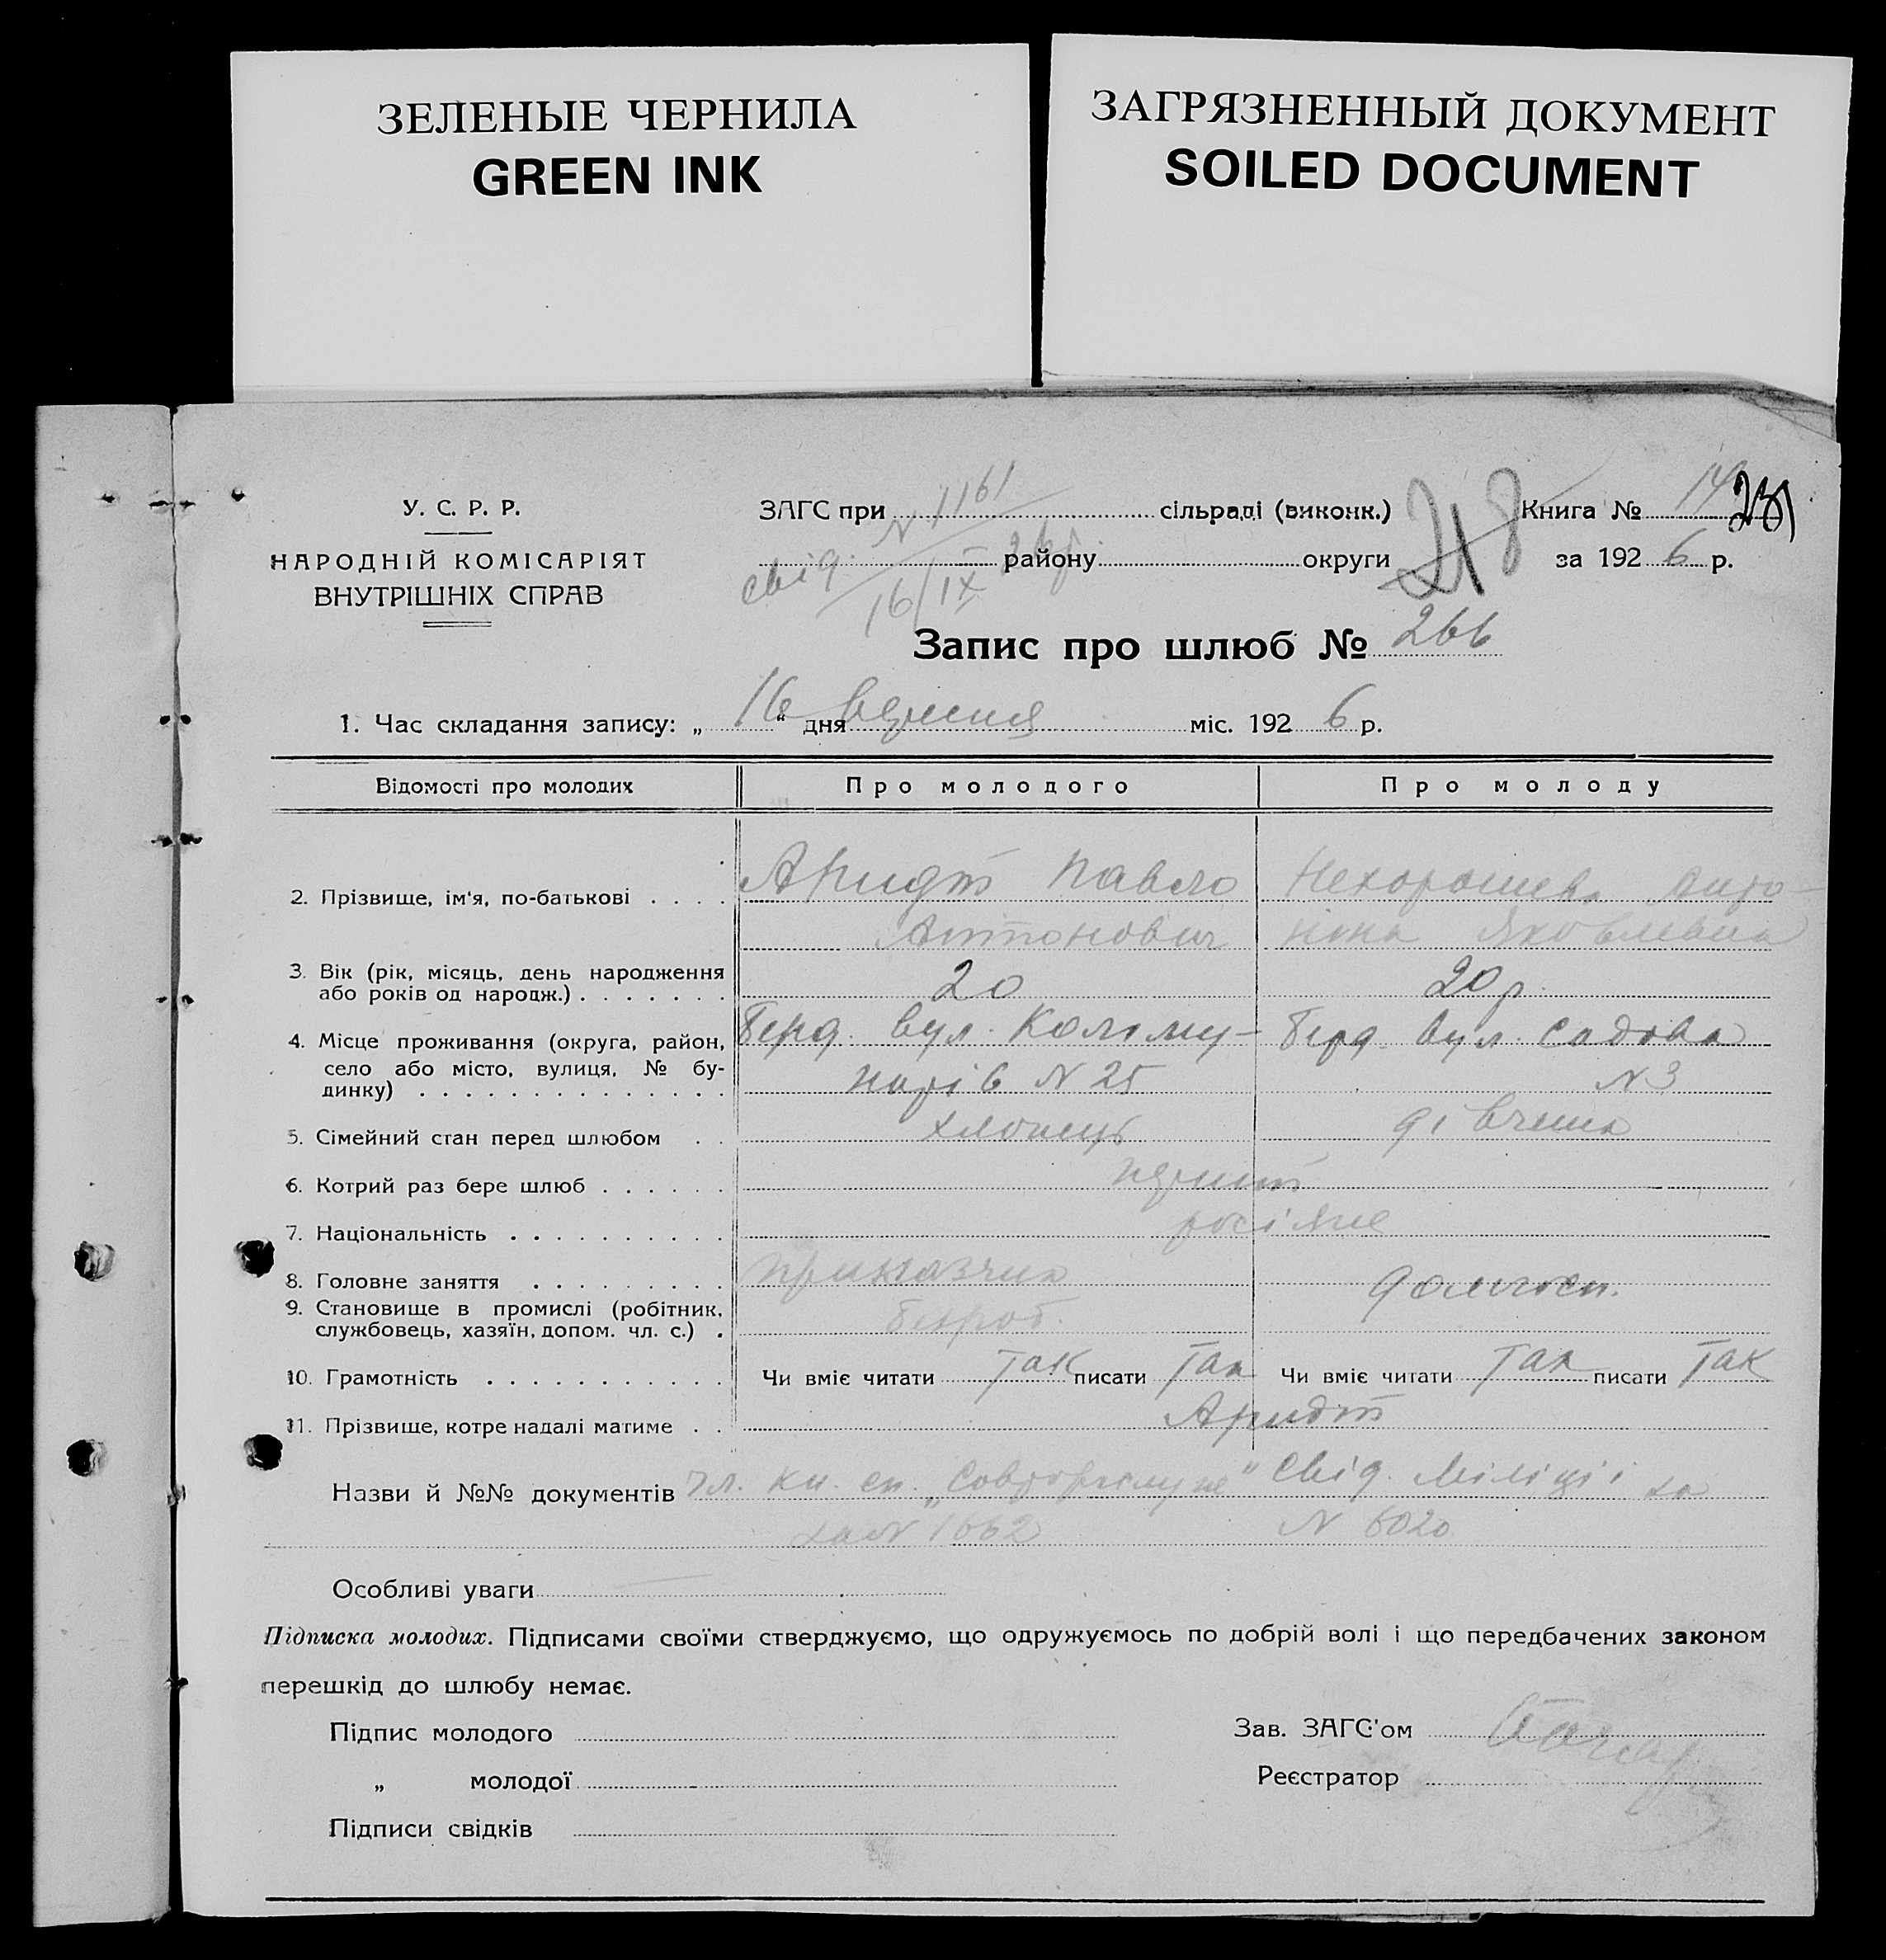 ЗЕЛЕНЫЕ ЧЕРНИЛА
GREEN INK
ЗАГРЯЗНЕННЫЙ ДОКУМЕНТ
SOILED DOCUMENT
У. С. Р. Р.
НАРОДНІЙ КОМІСАРІЯТ
ВНУТРІШНІХ СПРАВ
ЗАГС при сільраді (виконк.)
району округи
свід. N 1161
16/IX 26р.
218
Книга № 14
за 1926 р.
Запис про шлюб № 266
1. Час складання запису: „16“ дня вересня міс. 1926 р.
Відомості про молодих Про молодого Про молоду
2. Прізвище, ім'я, по-батькові . . . . Арндт Павло Нехорошева Анто-
Антонович ніна Яковлевна
3. Вік (рік, місяць, день народження
або років од народж.) . . . . . . . 20 20 р.
4. Місце проживання (округа, район, Берд. вул. Комму- Берд. вул. Садова
село або місто, вулиця, № бу- нарів N 25 N 3
динку) . . . . . . . . . . . . . .
5. Сімейний стан перед шлюбом . . хлопець дівчина
6. Котрий раз бере шлюб . . . . . . перший
7. Національність . . . . . . . . . . росіяне
8. Головне заняття . . . . . . . . . приказчик домгосп.
9. Становище в промислі (робітник,
службовець, хазяїн, допом. чл. с.) . безроб.
10. Грамотність . . . . . . . . . . . Чи вміє читати так писати так Чи вміє читати так писати так
11. Прізвище, котре надалі матиме . . Арндт
Назви й №№ документів чл. кн. сп. „Совторгслуж“ Свід. Міліції за
за N 1662 N 6020
Особливі уваги
Підписка молодих. Підписами своїми стверджуємо, що одружуємось по добрій волі і що передбачених законом
перешкід до шлюбу немає.
Підпис молодого
„ молодої
Підписи свідків
Зав. ЗАГС'ом
Реєстратор